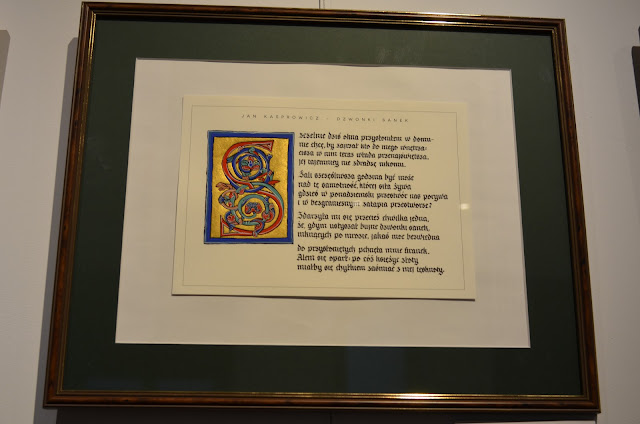 JAN KASPROWICZ : DZWONKI SANEK
Szczelnie dziś okna przysłoniłem w domu-
nie chcę, by zajrzał kto do mego wnętrza:
cisza w nim teraz włada przenajświętsza,
jej tajemnicy nie zdradzę nikomu.
Żali szczęśliwsza godzina być może
nad tę samotność, której siła żywa
gdzieś w ponadziemski przestwór nas porywa
i w bezgranicznym zatapia przestworze?
Zdarzyła mi się przecież chwilka jedna,
że, gdym usłyszał bujne dzwonki sanek,
mknących po mrozie, jakaś moc bezwiedna
do przysłoniętych pchnęła mnie firanek.
Alem się oparł: po cóż księżyc złoty
miałby się chyłkiem zaśmiać z mej tęsknoty.